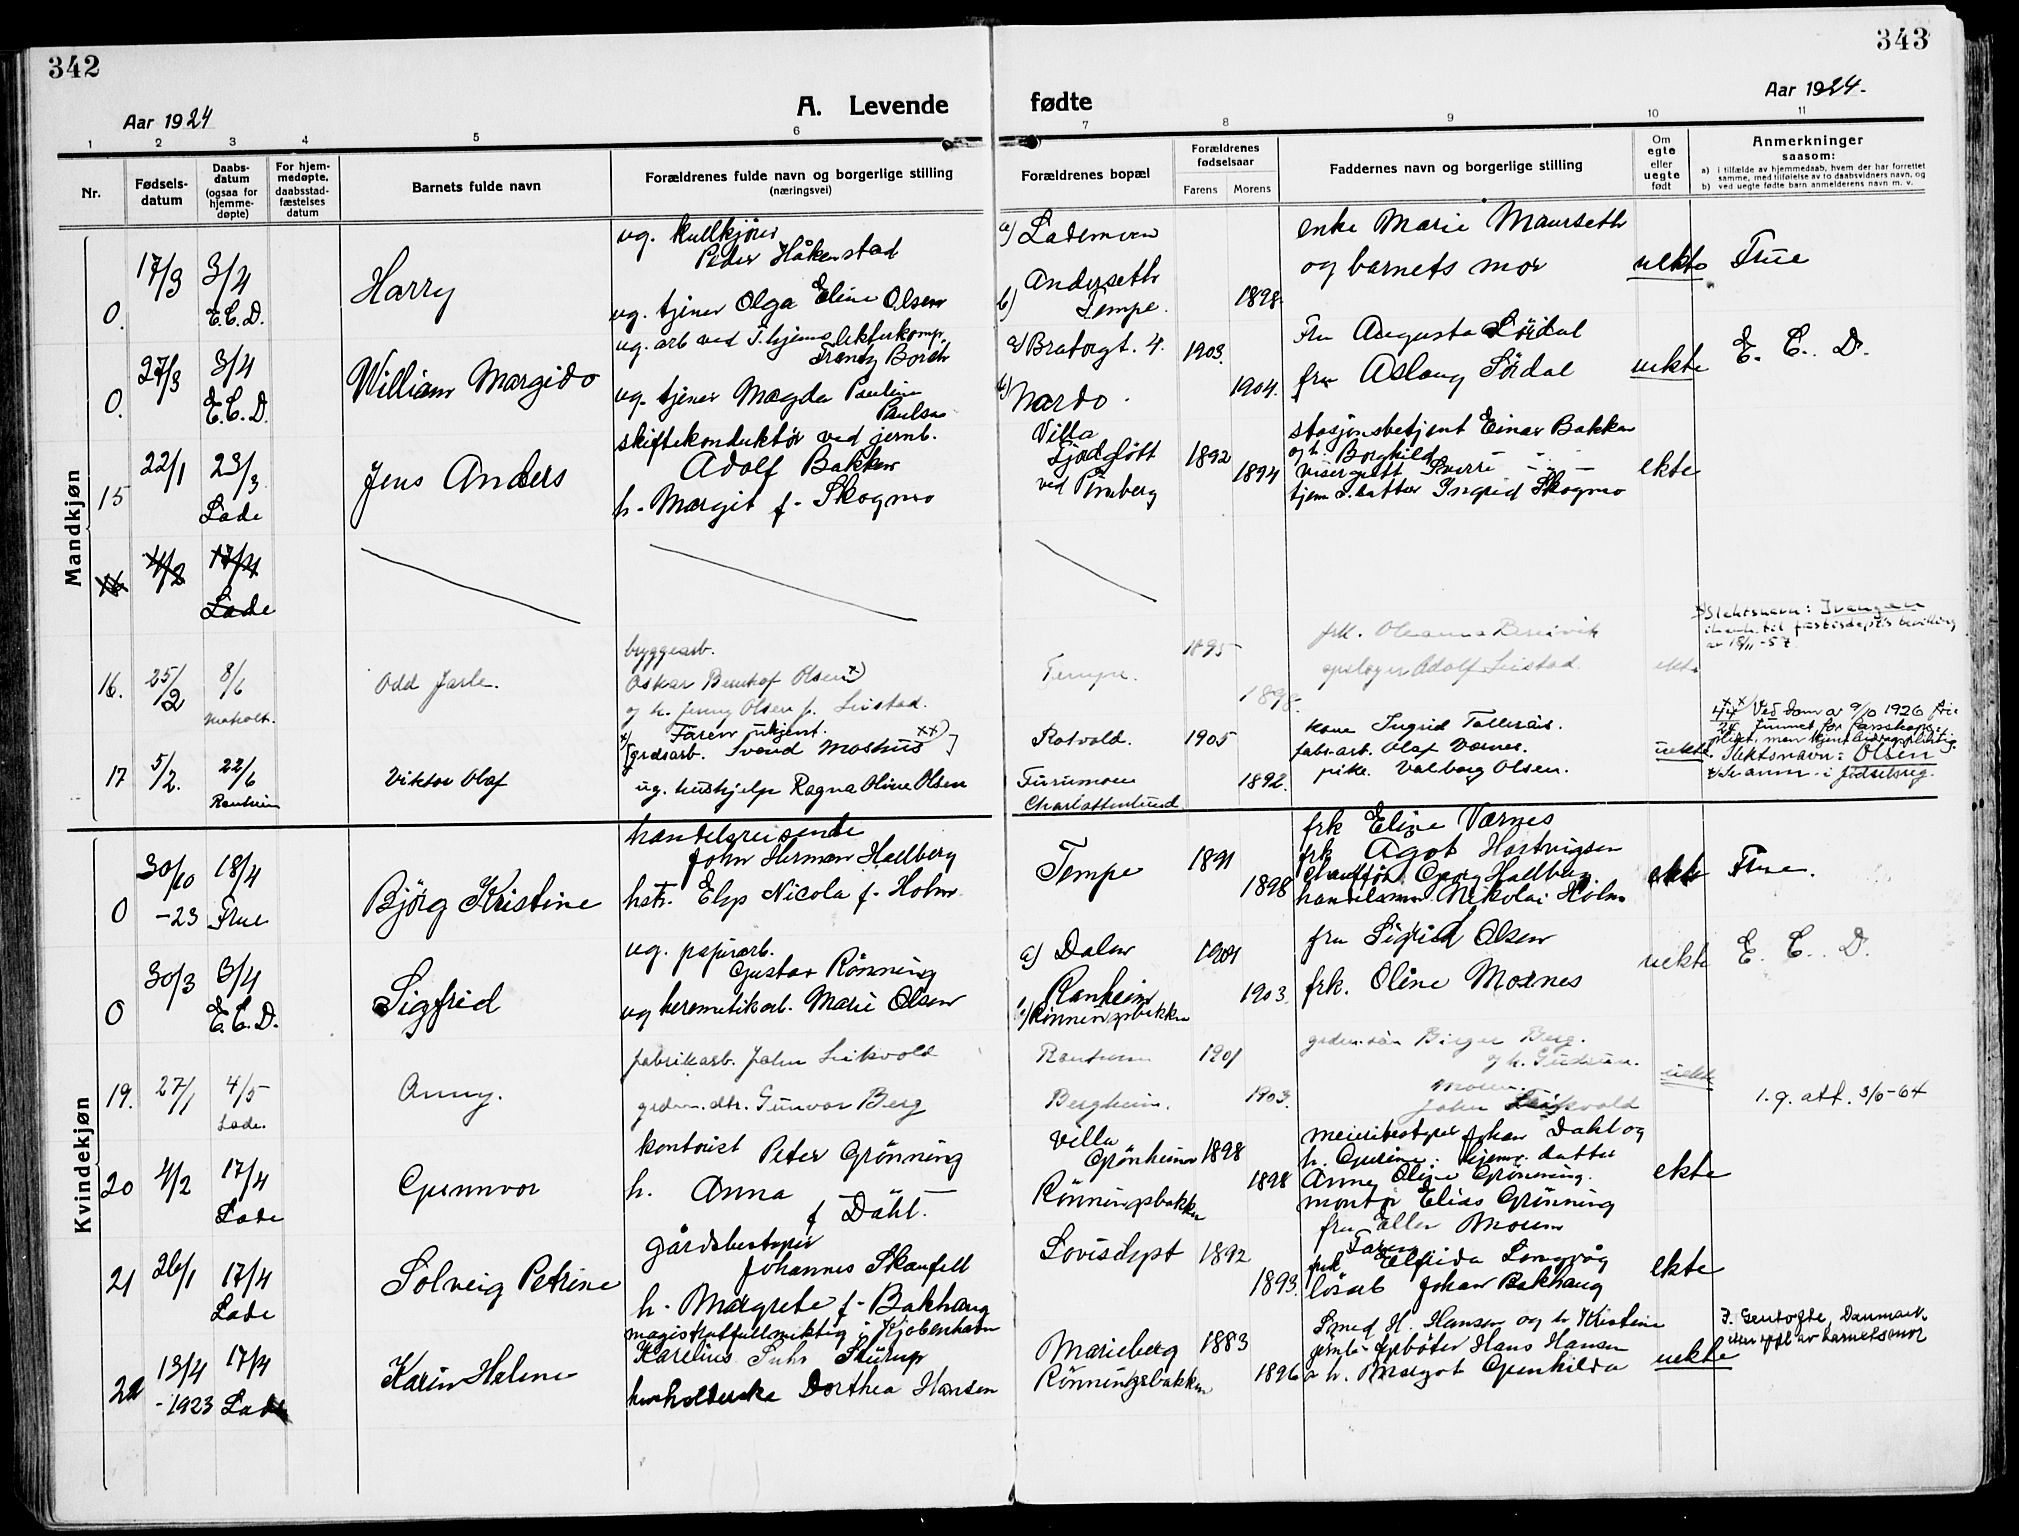 342
343
Aar 1924
A. Levende
fødte
Aar 1924.
1 2 3 4 5 6 7 8 9 10 11
Nr.
Fødsels-
datum
Daabs-
datum
(ogsaa for
hjemme-
døpte)
For hjem-
medøpte,
daabsstad-
fæstelses
datum
Barnets fulde navn
Forældrenes fulde navn og borgerlige stilling
(næringsvei)
Forældrenes bopæl
Forældrenes
fødselsaar
Farens Morens
Faddernes navn og borgerlige stilling
Om
egte
eller
uegte
født
Anmerkninger
saasom:
a) i tilfælde av hjemmedaab, hvem der har forrettet
samme, med tilføielse av to daabsvidners navn, og
b) ved uegte fødte barn anmelderens navn m. v.
Mandkjøn
0. 17/3 3/4
E.C.D.
Harry
ug. kullkjører
Peder Håkenstad
ug. tjener Olga Eline Olsen
a) Lademoen
b) Tempe.
1898.
enke Marie Maurseth
og barnets mor
uekte
Frue
0. 27/3 3/4
E.C.D.
William Margido
ug. arb ved T.hjems Aktietkomp.
Frantz Borch
ug. tjener Magda Pauline
Paulsen
a) Bratørgt. 4.
b) Nardo.
1903.
1904.
Fru Augusta Sördal
frk Aslaug Sördal
uekte
E. C. D.
15 22/1 23/3
Lade
Jens Anders
skiftekonduktör ved jernb.
Adolf Bakken
h. Margit f. Skogmo
Villa
Fjodgløtt
ved
1892
1894
stasjonsbetjent Einar Bakken
og h. Borghild
visergutt Sverre - " -
hjemv. datter Ingrid Skogmo
ekte
16 11/2 17/4
Lade
16. 25/2 8/6
Moholt.
Odd Jarle.
byggearb.
Oskar Bernhof Olsen x)
og h. Jenny Olsen f. Leistad.
Tempe.
1895
1898.
frk. Oleanna Breivik
opsøger Adolf Leistad.
ekte
x) Slektsnavn: Ivangen
i henh. til justisdept's bevilling
av 18/11-57.
17 5/2. 22/6
Ranheim
Viktor Olaf
x) Faren ukjent.
[grdsarb. Svend Moshus xx)]
ug. hushjelp Ragna Oline Olsen
Rotvold.
Furumoen
Charlottenlund
1905
1892.
kone Ingrid Tollerås.
fabr.arb. Olaf Værnes.
pike. Valborg Olsen.
uekte.
xx) Ved dom av 9/10 1926 fri-
funnet for farskaps-
plikt, men kjent bidragspliktig.
Slektsnavn: Olsen
anm. i fødselsreg.
Kvindekjøn
0 30/10 18/4
-23 Frue
Björg Kristine
handelsreisende
John Herman Hallberg
hstr. Elsp Nicola f. Holm
Tempe
1891
1898
frk Eline Værnes
frk Agot Hartvigsen
chauffør Georg Hallberg
handelsmann Nikolai Holm
ekte
Frue.
0 30/3 3/4
E.C.D.
Sigfrid
ug. papirarb.
Gustav Rönning
ug hermetikarb. Marie Olsen
a) Dalen
Ranheim
b) Rönningsbakken
1904
1903.
fru Sigrid Olsen
frk. Oline Mosnes
uekte
E. C. D.
19. 27/1 4/5
Lade.
Anny.
fabrikarb. John Leikvold
grdm. dtr. Gunvor Berg
Ranheim
Bergheim.
1901
1903.
grdm. sön Birger Berg.
og h. Gudrun.
Moren.
John Leikvold
uekte
1. g. att. 3/6-64
20 4/2 17/4
Lade
Gunnvor
kontorist Peter Grönning
h. Anna
f Dahl.
Villa
Grönheim
Rönningsbakken
1898
1898
meieribestyrer Johan Dahl og
h. Gurine. hjemv. datter
Anny Oline Grönning.
montör Elias Grönning
fru Ellen Moum
Faren
ekte
21 26/1 17/4
Lade
Solveig Petrine
gårdsbestyrer
Johannes Skaufell
h. Margrete f. Bakhaug
Lovislyst
1892
1893.
frk Elfrida Longvåg
lösarb Johan Bakhaug
ekte
22 13/4 17/4
-1923 Lade
Karin Helene
magistratfullmektig i Kjøbenhavn
Karelius Suhr Skurup
husholderske Dorthea Hansen
Marieberg
Rönningsbakken
1883
1896
Smed H. Hansen og h Kristine
jernb. Hans Hansen
o h. Margot Gunhilda
uekte
F. Gentofte, Danmark
etter opl av barnets mor